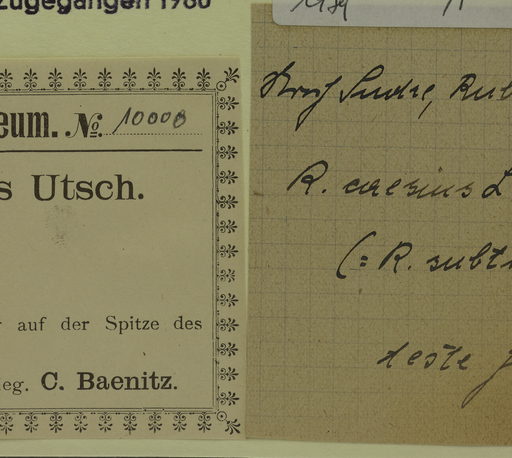 zugegangen 1980
eum. No. 10000
s Utsch.
auf der Spitze des
leg. C. Baenitz.
Sudre, Rub
R. caesius L
(= R. subt
teste